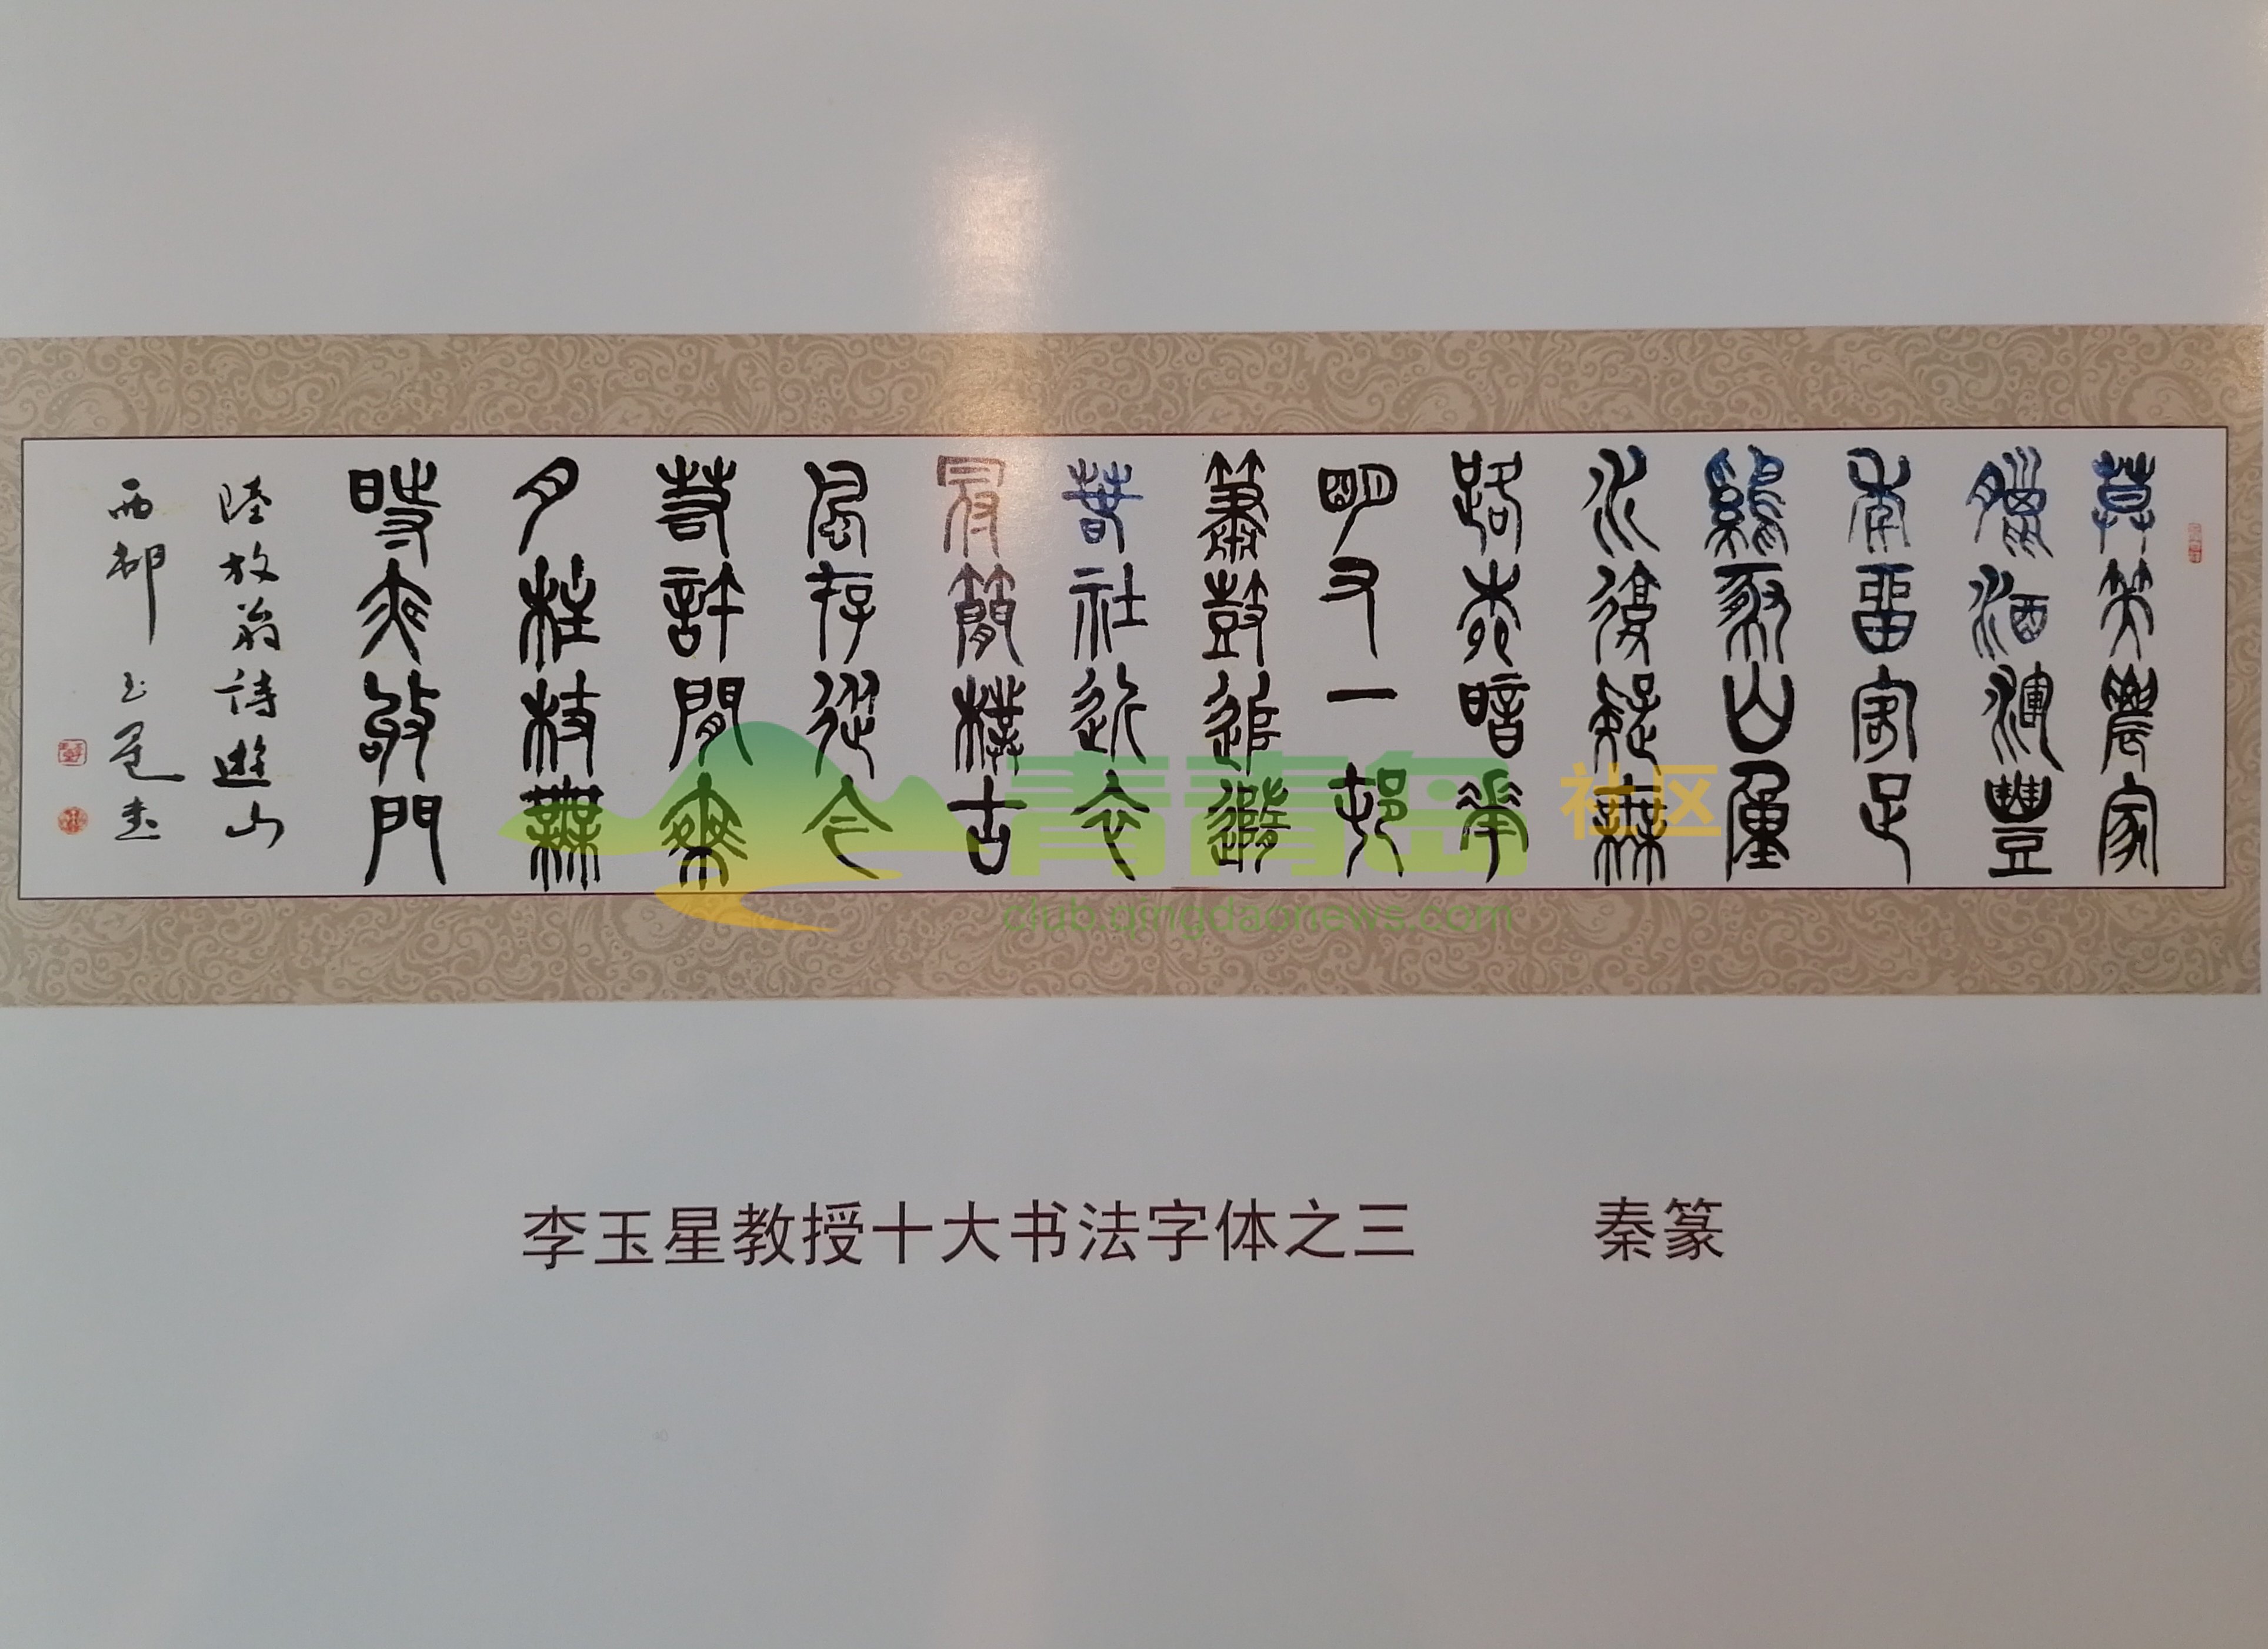 莫笑農家
臘酒渾豐
年留客足
雞豚山重
水復疑無
路柳暗華
明又一邨
簫鼓追隨
春社近衣
冠簡樸古
風存從今
若許閒乘
月柱杖無
時夜敲門
陸放翁詩遊山
西邨 玉星書
青青岛 社区
club.qingdaonews.com
李玉星教授十大书法字体之三 秦篆